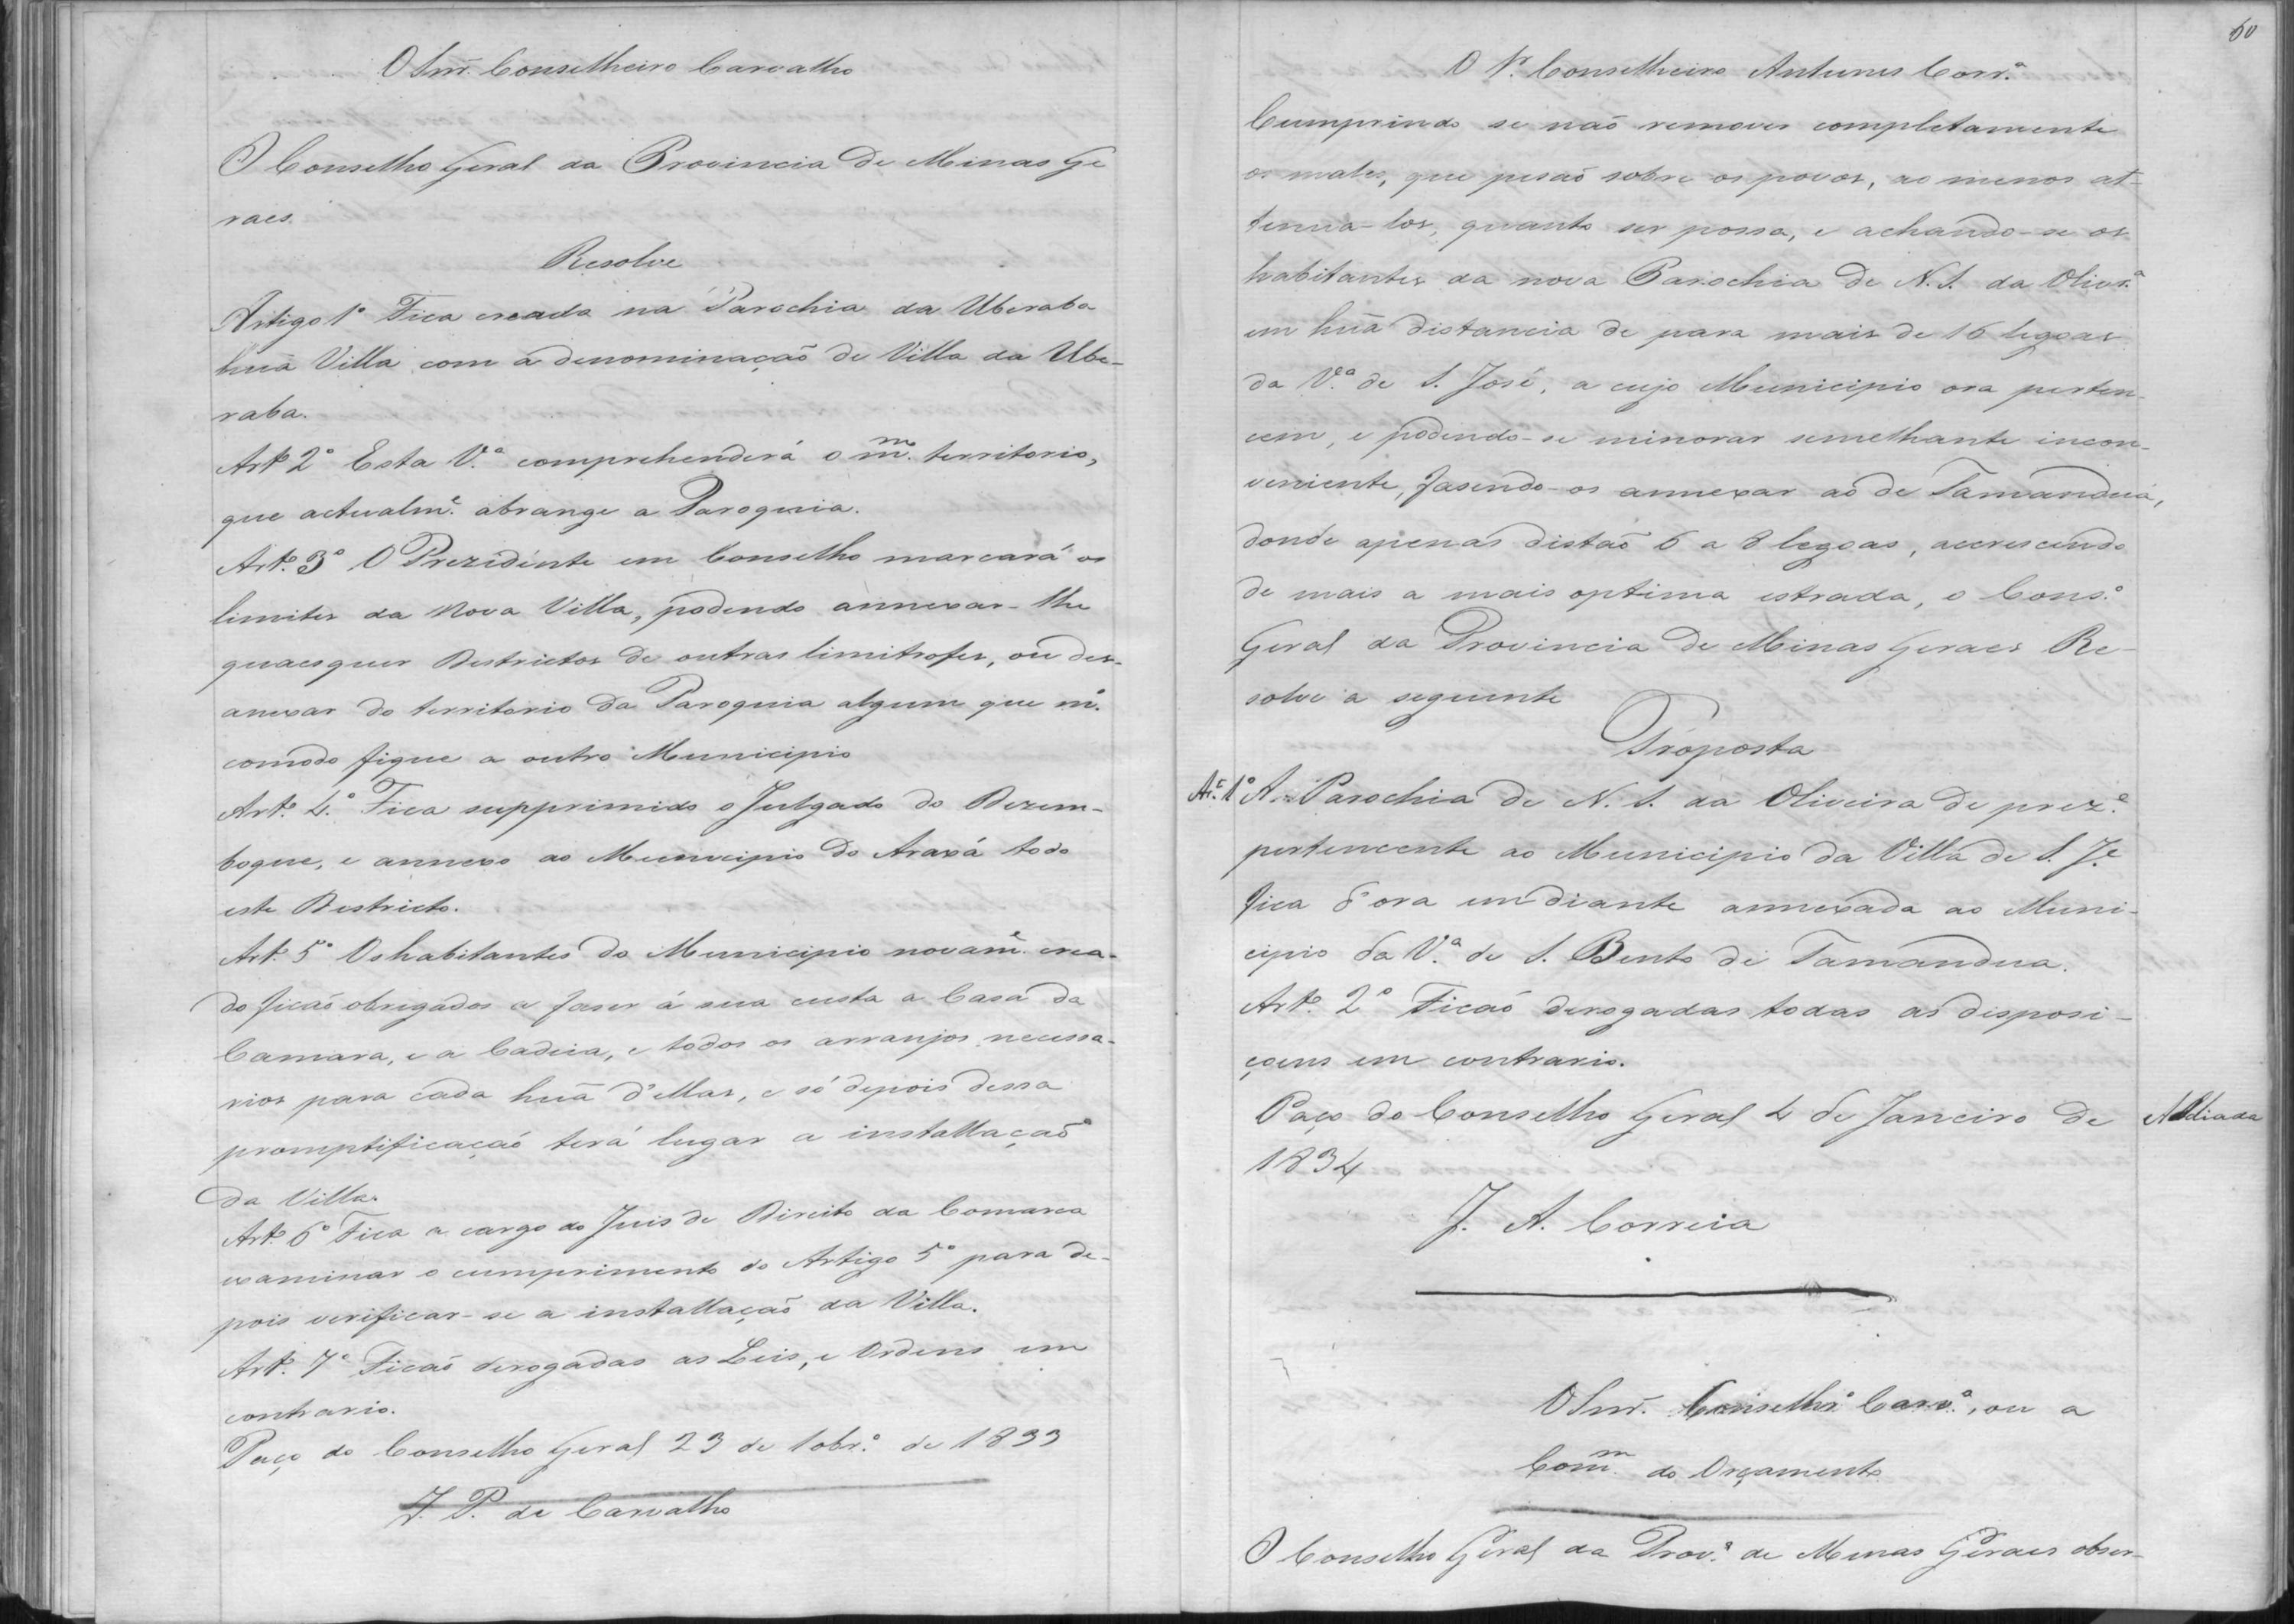 O Snr. Conselheiro Carvalho
O Conselho Geral da Provincia de Minas Ge
raes.
Resolve
Artigo 1º Fica creada na Parochia da Uberaba
huã Villa com a denominação de Villa da Ube-
raba.
Artº 2º Esta V.ª comprehenderá o m.mo territorio,
que actualm.e abrange a Paroquia.
Artº. 3º O Prezidente em Conselho marcará os
limites da nova Villa, podendo annexar-lhe
quaesquer Destrictos de outras limitrofes, ou des-
anexar do territorio da Paroquia algum que m.º
comodo fique a outro Municipio
Artº. 4.º Fica supprimido o Julgado do Dezem-
boque, e annexo ao Municipio do Araxá todo
este Destricto.
Artº. 5º Os habitantes do Municipio novam.e crea-
do ficaõ obrigados a faser á sua custa a Casa da
Camara, e a Cadeia, e todos os arranjos necessa-
rios para cada huã d'ellas, e só depois dessa
promptificaçaõ terá lugar a installaçaõ
da Villa.
Artº. 6º Fica a cargo do Juis de Direito da Comarca
examinar o cumprimento do Artigo 5º para de-
pois verificar-se a installaçaõ da Villa.
Artº. 7º Ficaõ derogadas as Leis, e Ordens em
contrario.
Paço do Conselho Geral 23 de 10br.º de 1833
J. P. de Carvalho
60
O Sr. Conselheiro Antunes Corr.ª
Cumprindo se naõ remover completamente
os males, que pesaõ sobre os povos, ao menos at-
tenua-los, quanto ser possa, e achando-se os
habitantes da nova Parochia de N. S. da Olivr.ª
em huã distancia de para mais de 16 legoas
da V.ª de S. José, a cujo Municipio ora perten-
cem, e podendo-se minorar semelhante incon-
veniente, fasendo-os annexar ao de Tamanduá,
donde apenas distaõ 6 a 8 legoas, accrescendo
de mais a mais optima estrada, o Cons.º
Geral da Provincia de Minas Geraes Re-
solve a seguinte
Proposta
Ar.t 1º A Parochia de N. S. da Oliveira de prez.e
pertencente ao Municipio da Villa de S. J.e
fica d'ora em diante annexada ao Muni-
cipio da V.ª de S. Bento de Tamandua.
Artº. 2º Ficaõ derogadas todas as disposi-
çoens em contrario.
Paço do Conselho Geral 4 de Janeiro de
Addiada
1834
J. A. Correia
O Snr. Conselhr.º Carv.º, ou a
Com.m do Orçamento
O Conselho Geral da Prov.ª de Minas Geraes obser-